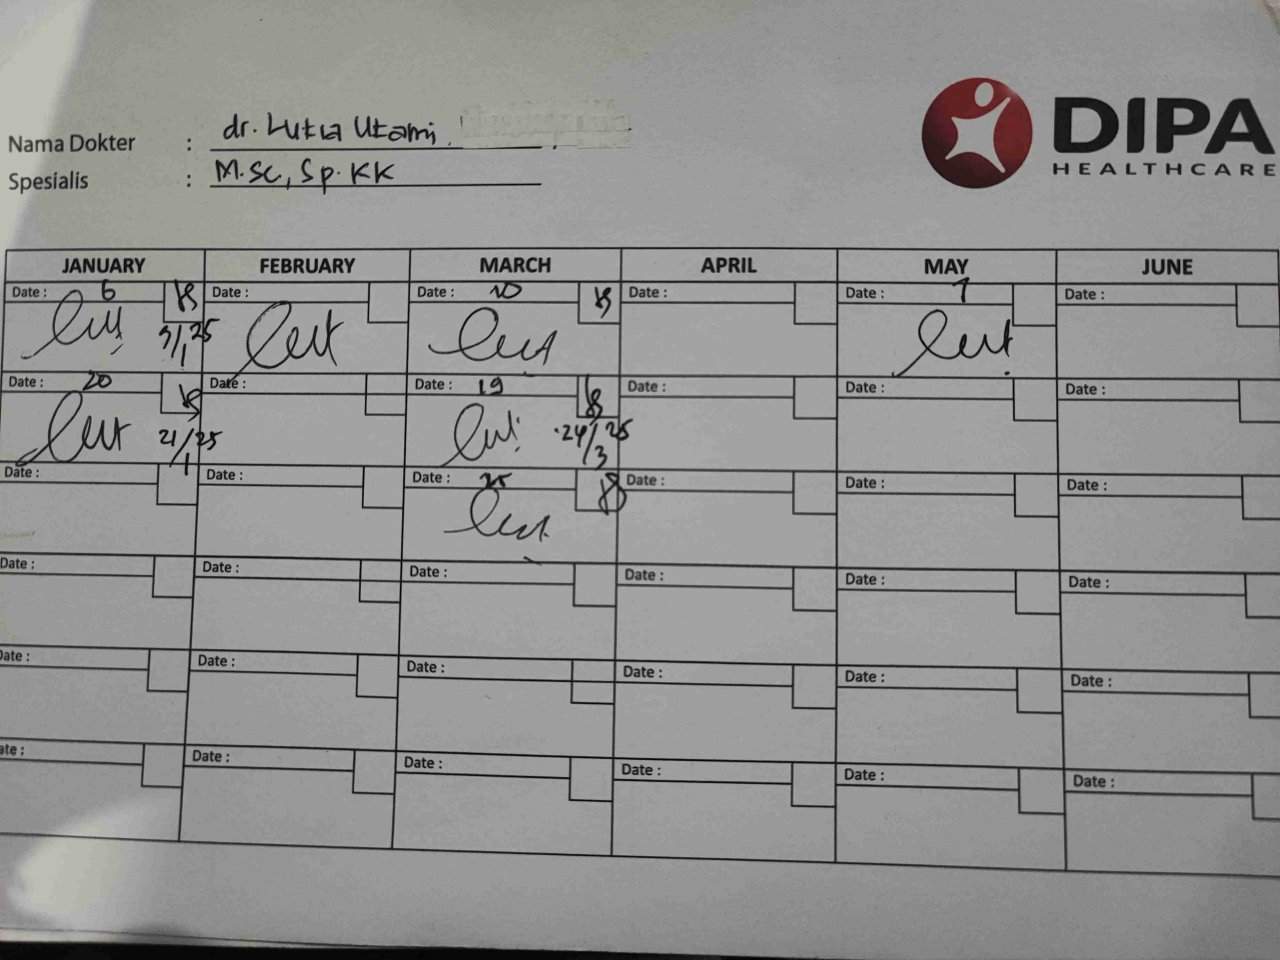 DIPA
HEALTHCARE
Nama Dokter : dr. Lutia Utami
Spesialis : M.Sc, Sp. KK
JANUARY FEBRUARY MARCH APRIL MAY JUNE
Date : 6 Date : Date : 10 Date : Date : 7 Date :
9/1 25
Date : 20 Date : Date : 19 Date : Date :
21/1 25 24/3 25
Date : Date : Date : 25 Date : Date : Date :
Date : Date : Date : Date : Date : Date :
Date : Date : Date : Date : Date : Date :
Date : Date : Date : Date : Date : Date :